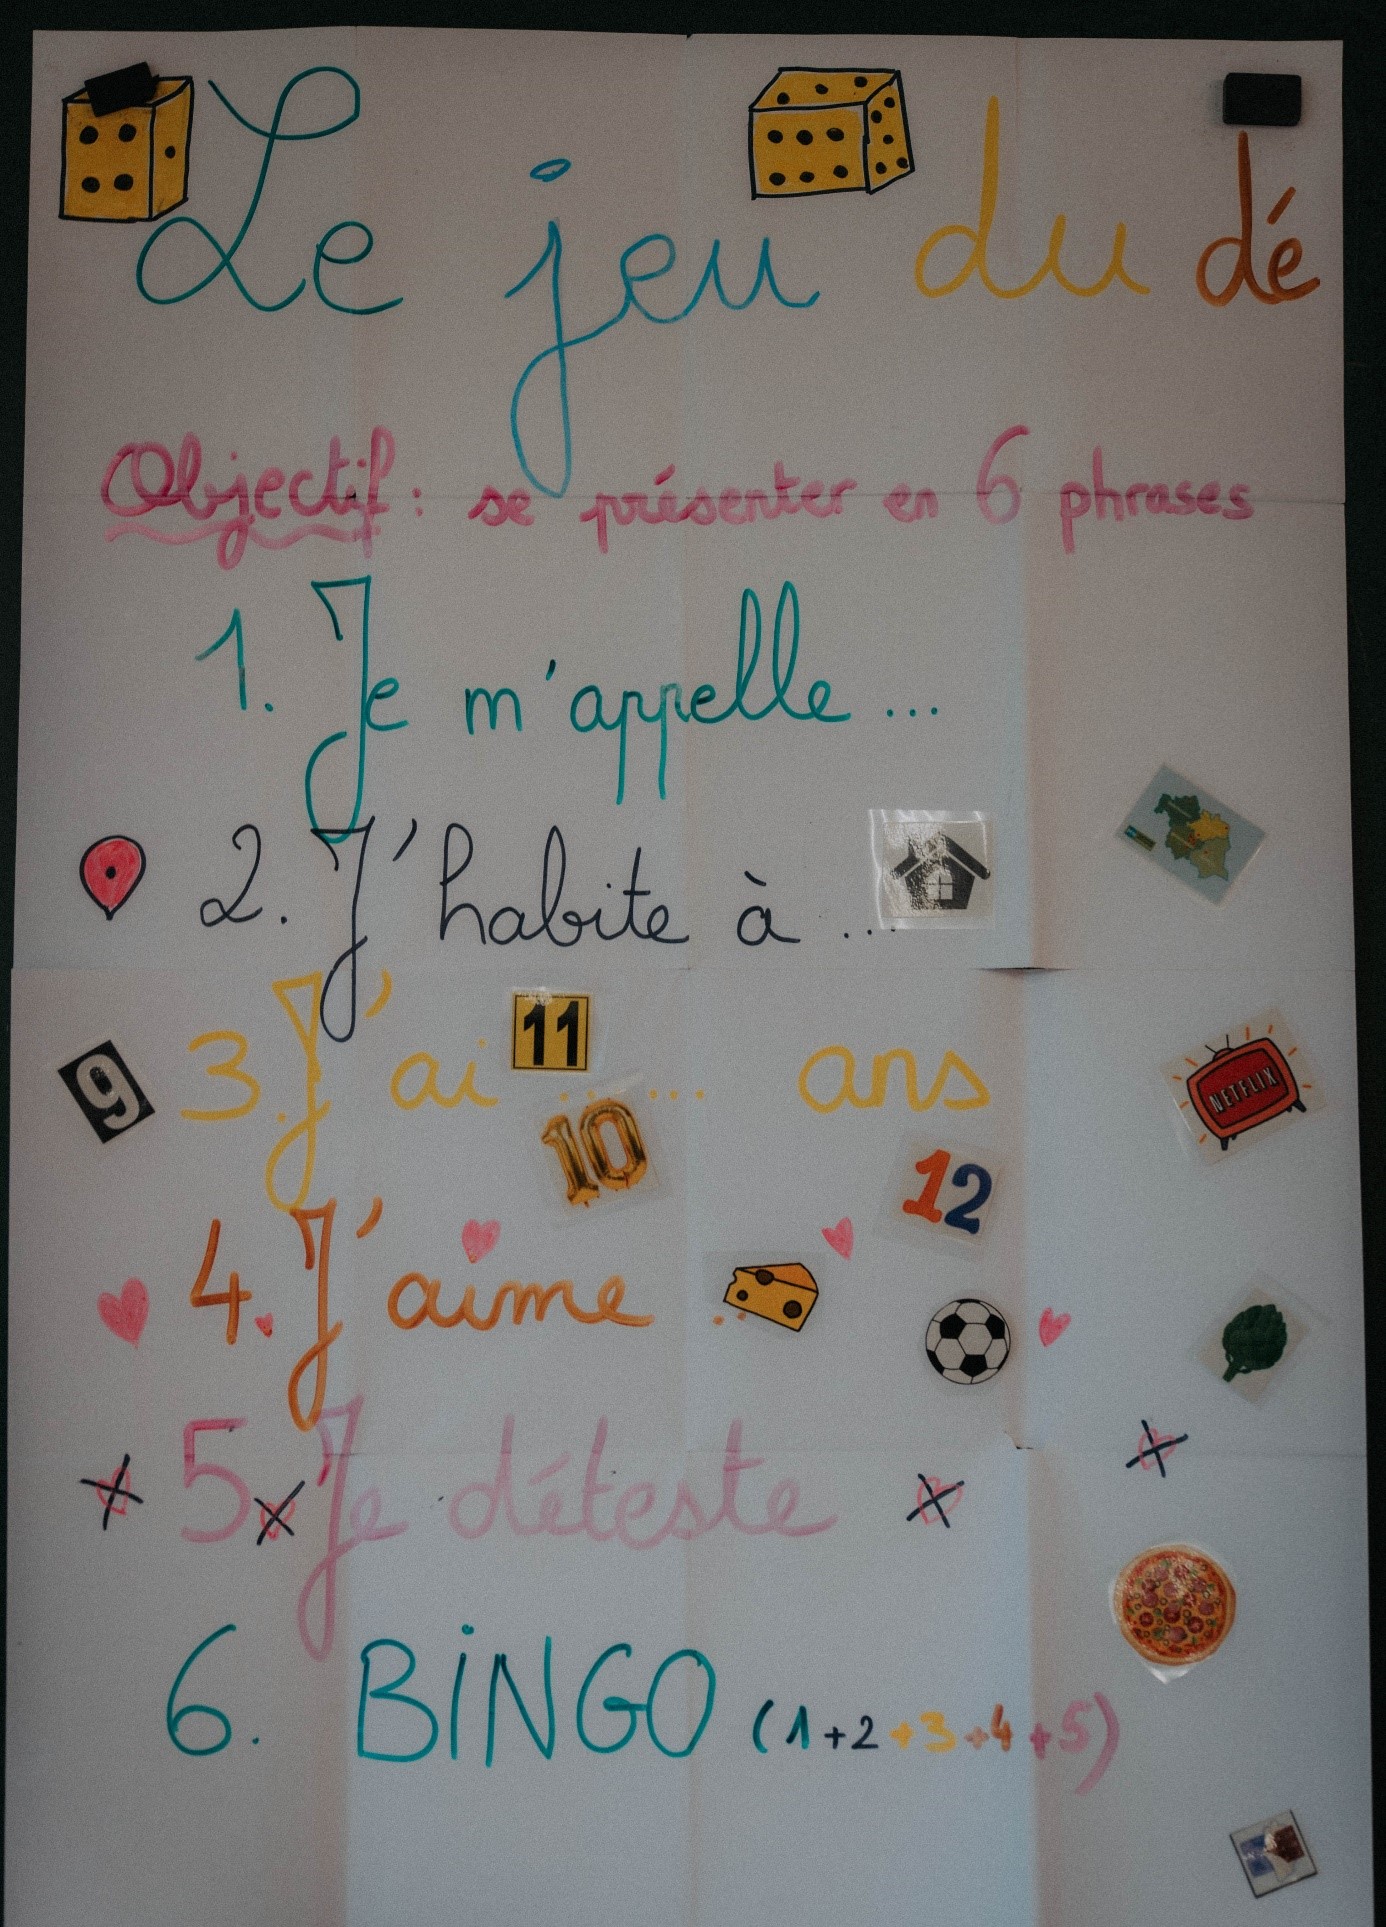 Le jeu du dé
Objectif : se présenter en 6 phrases
1. Je m'appelle ...
2. J'habite à ...
11
9
3. J'ai ...... ans
NETFLIX
10
12
4. J'aime ..
5. Je déteste
6. BINGO (1+2+3+4+5)